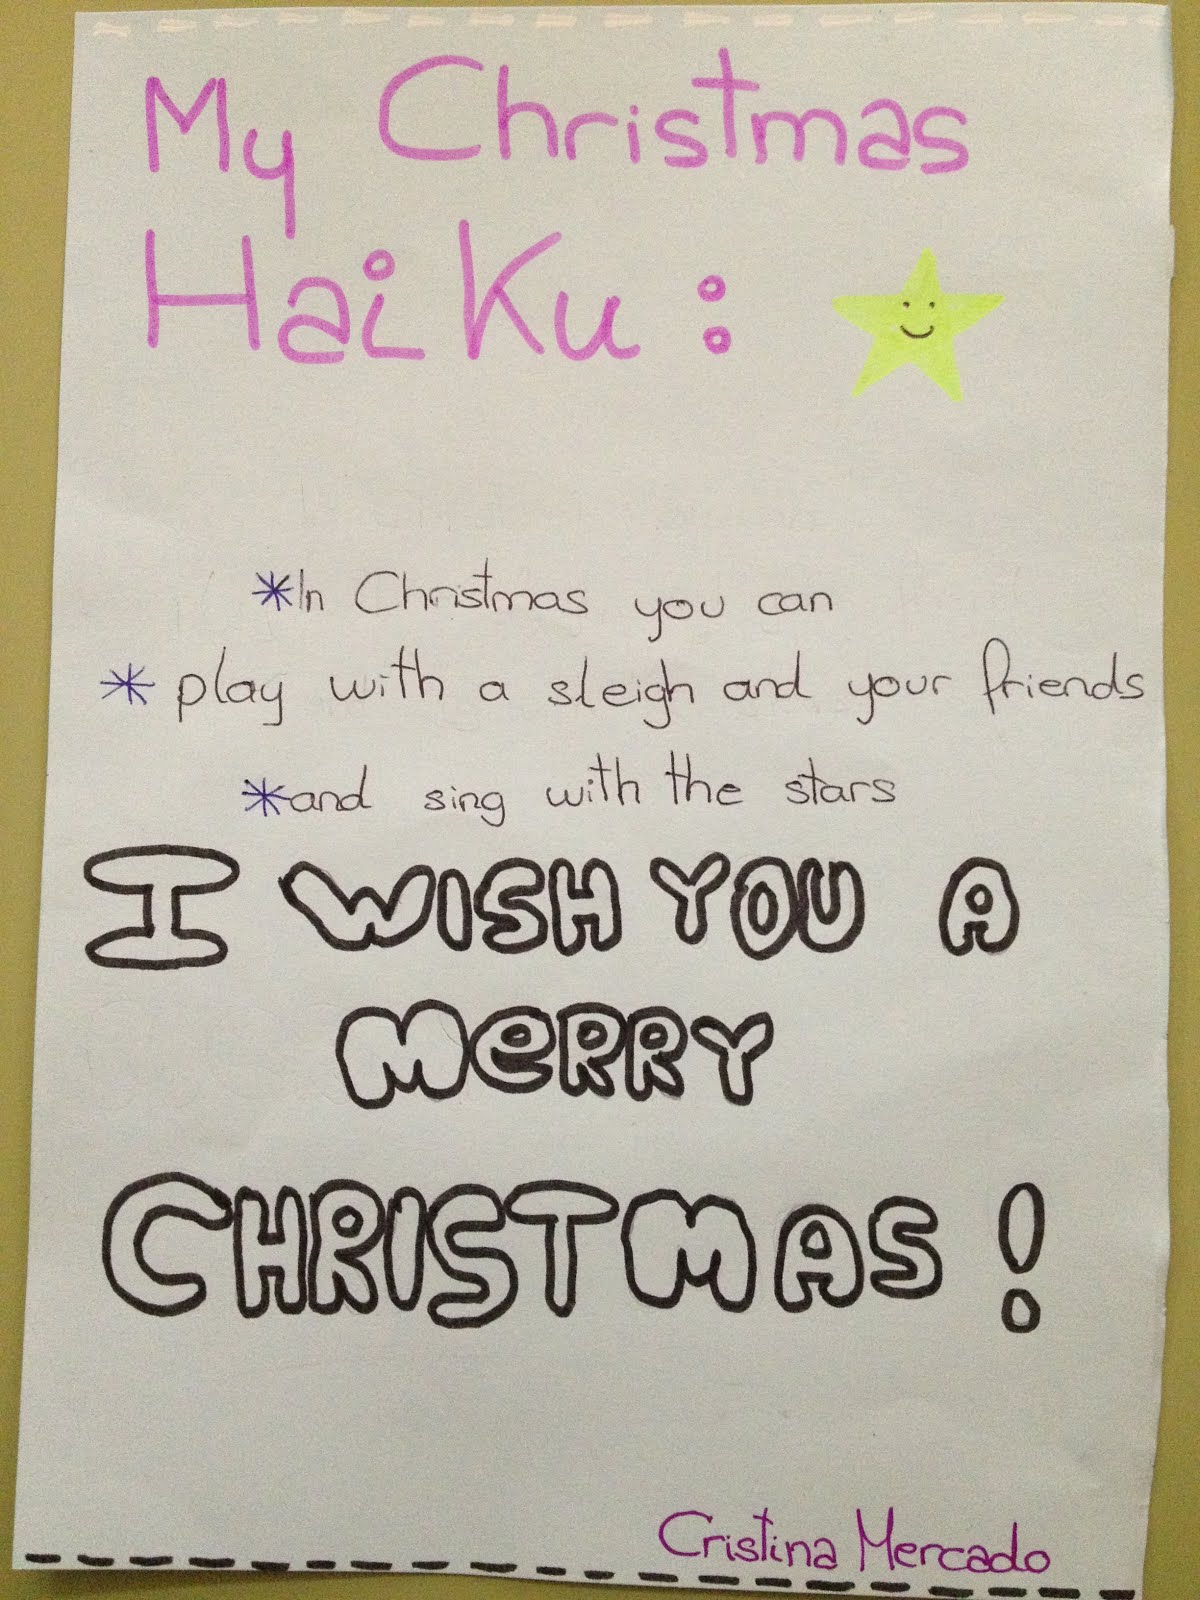 My Christmas
Haiku:
*In Christmas you can
* play with a sleigh and your friends
*and sing with the stars
I WISH YOU A
MeRRY
CHRISTMAS!
Cristina Mercado